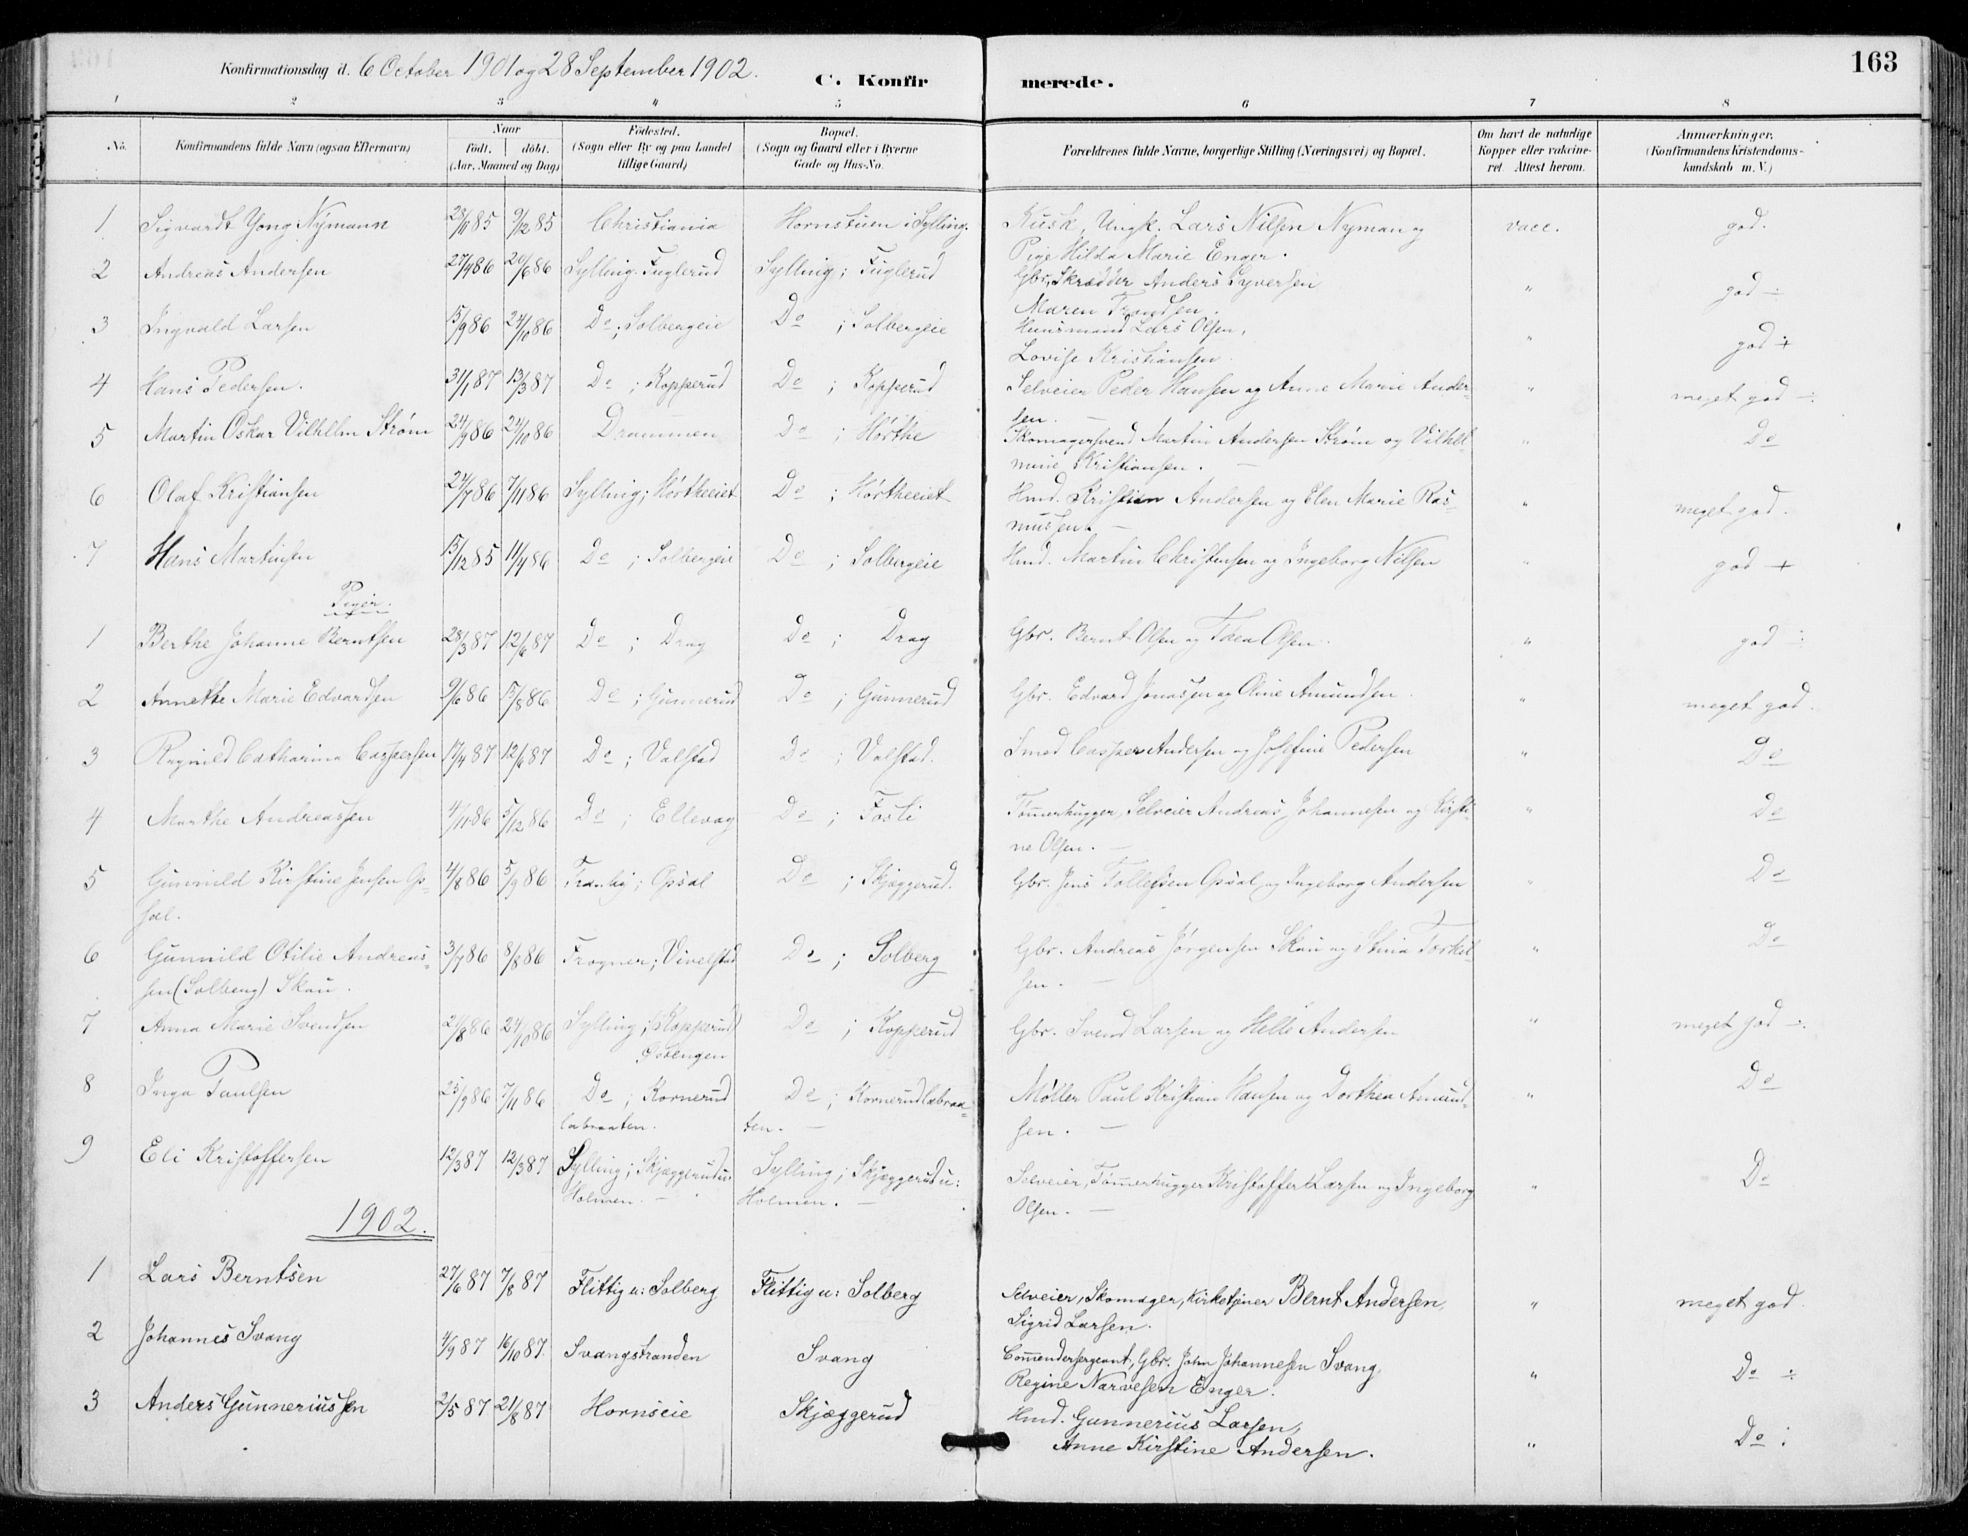 163
Konfirmationsdag d. 6 October 1901 og 28 September 1902. C. Konfirmerede.
1 2 3 4 5 6 7 8
No. Konfirmandens fulde Navn (ogsaa Efternavn) Naar Født. døbt. (Aar, Maaned og Dag) Fødested. (Sogn eller By og paa Landet tillige Gaard) Bopæl. (Sogn og Gaard eller i Byerne Gade og Hus-No. Forældrenes fulde Navne, borgerlige Stilling (Næringsvei) og Bopæl. Om havt de naturlige Kopper eller vakcineret. Attest herom. Anmærkninger. (Konfirmandens Kristendomskundskab m. V.)
1 Sigvardt Yong Nymann 28/11 85 9/12 85 Christiania Hornstuen i Sylling. Kusk, Ungk. Lars Nilsen Nyman og vacc. god.
Pige Hilda Marie Enger.
2 Andreas Andersen 27/4 86 20/6 86 Sylling. Fuglerud Sylling; Fuglerud Gbr, Skrædder Anders Syversen " god ÷
Maren Trondsen.
3 Ingvald Larsen 15/9 86 24/10 86 Do; Solbergeie Do; Solbergeie Husmand Lars Olsen, " god +
Lovise Kristiansen.
4 Hans Pedersen. 31/1 87 13/3 87 Do; Kopperud Do; Kopperud Selveier Peder Hansen og Anne Marie Ander- " meget god ÷
sen.
5 Martin Oskar Vilhelm Strøm 24/9 86 24/10 86 Drammen Do; Hørthe Skomagersvend Martin Andersen Strøm og Vilhel- " Do
mine Kristiansen.
6 Olaf Kristiansen 24/7 86 7/11 86 Sylling; Hørtheeiet Do; Hørtheeiet Hmd. Kristian Andersen og Elen Marie Ras- " meget god.
mussen.
7 Hans Martinsen 15/12 85 11/4 86 Do; Solbergeie Do; Solbergeie Hmd. Martin Christensen og Ingeborg Nilsen " god +
Piger.
1 Berthe Johanne Berntsen 28/3 87 12/6 87 Do; Drag Do; Drag Gbr. Bernt Olsen og Thea Olsen. " god ÷
2 Annette Marie Edvardsen 9/6 86 15/8 86 Do; Gunnerud Do; Gunnerud Gbr. Edvard Jonassen og Oline Amundsen. " meget god.
3 Ragnild Catharina Caspersen 17/4 87 12/6 87 Do; Valstad Do; Valstad. Smed Casper Andersen og Josefine Pedersen " Do
4 Marthe Andreassen 4/11 86 5/12 86 Do; Ellevag Do; Fosli Tømmerhugger, Selveier Andreas Johannesen og Kirsti- " Do
ne Olsen.
5 Gunnild Kirstine Jensen Op- 4/8 86 5/9 86 Tranby; Opsal Do; Skjæggerud. Gbr. Jens Tollefsen Opsal og Ingeborg Andersen " Do
sal.
6 Gunnild Otilie Andreas- 3/7 86 8/8 86 Frogner; Vivelstad Do; Solberg Gbr. Andreas Jørgensen Skau og Stina Torkil- " Do
sen (Solberg) Skau. sen.
7 Anna Marie Svendsen 21/8 86 24/10 86 Sylling; Kopperud Do; Kopperud Gbr. Svend Larsen og Helle Andersen " meget god ÷.
8 Inga Paulsen 25/9 86 7/11 86 Do; Kornerud Do; Kornerudlabraa- Møller Paul Kristian Hansen og Dorthea Amund- " Do
labraaten. ten. sen.
9 Eli Kristoffersen 12/3 87 12/3 87 Sylling; Skjæggerud u: Sylling; Skjæggerud u: Selveier, Tømmerhugger Kristoffer Larsen og Ingeborg " Do
Holmen. Holmen. Olsen.
1902.
1 Lars Berntsen 27/6 87 7/8 87 Flittig u: Solberg Flittig u: Solberg Selveier, Skomager, Kirketjener Bernt Andersen, " meget god.
Sigrid Larsen.
2 Johannes Svang 4/9 87 16/10 87. Svangstranden Svang Commendersergeant, Gbr. John Johannesen Svang, " Do ÷
Regine Narvesen Enger.
3 Anders Gunneriussen 2/5 87 21/8 87 Hornseie Skjæggerud Hmd. Gunnerius Larsen,
Anne Kirstine Andersen. " Do